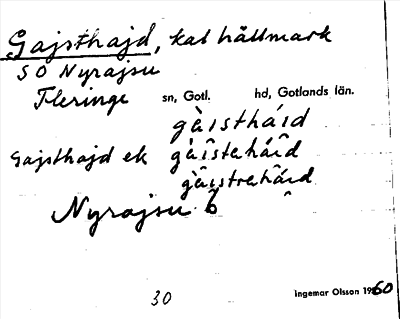 Gajsthajd, kal hällmark
SO Nyrajsu
Fleringe sn, Gotl. hd, Gotlands län.
gàıstháıd
Gajsthajd ek gàı̂steháı̂d
gàı̂strehâıd
Nyrajsu 6
30
Ingemar Olsson 1960